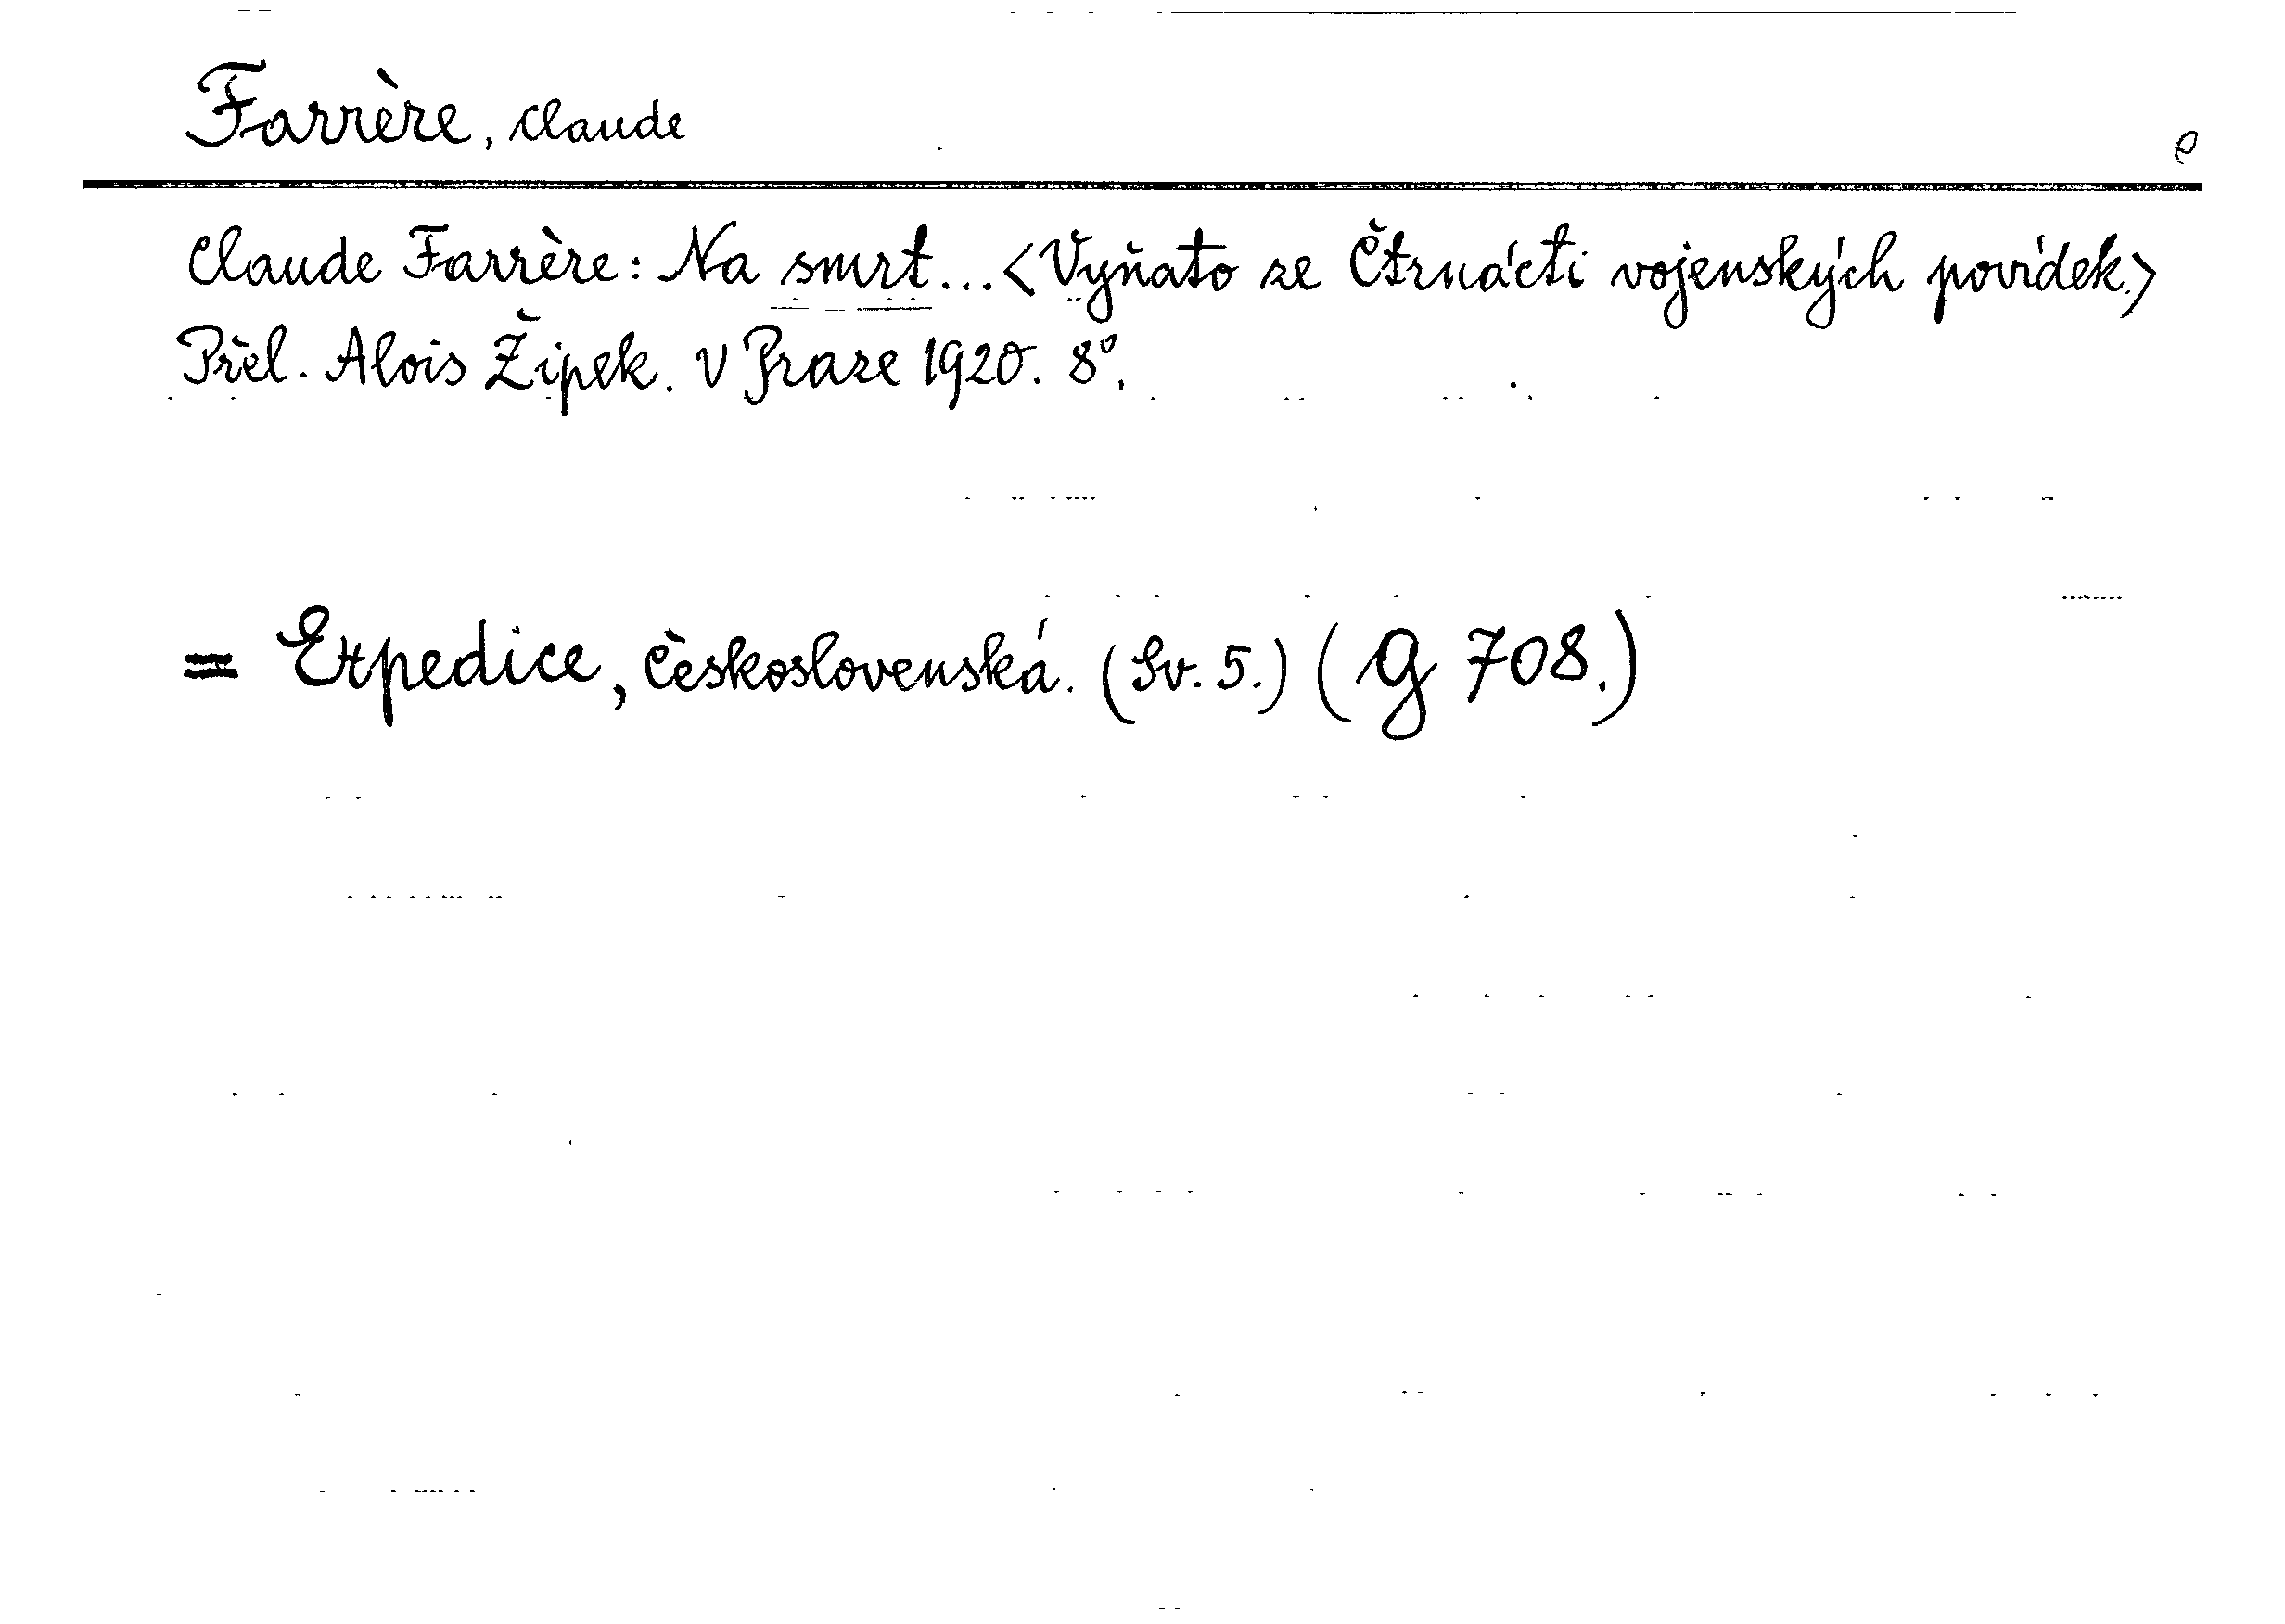 Farrère, Claude
e
Claude Farrère: Na smrt...<Vyňato ze Čtrnácti vojenských povídek.>
Přel. Alois Žipek. V Praze 1920. 8°.
= Expedice, československá. (Sv. 5.) (G 708.)